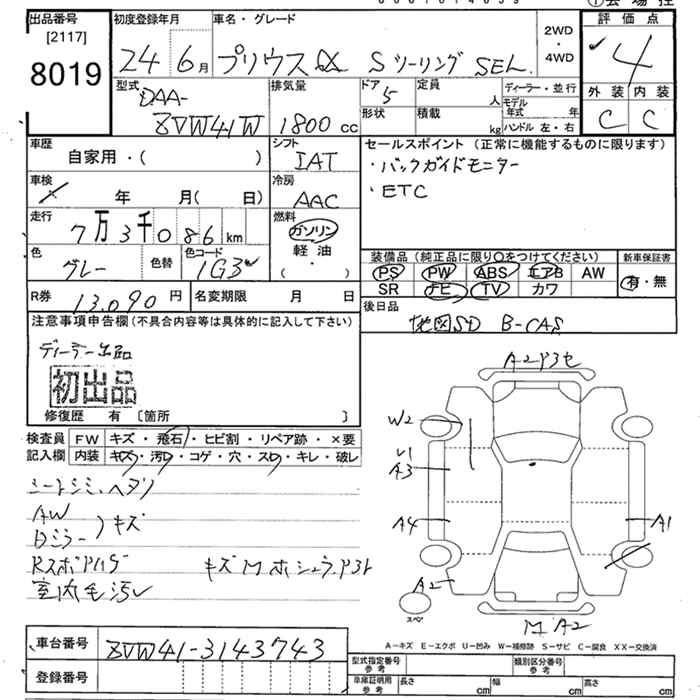 出品番号 [2117] 8019
初度登録年月 24 6月
車名・グレード プリウスα Sツーリング SEL.
2WD・4WD
評価点 4
外装 C 内装 C
型式 DAA-ZVW41W
排気量 1800cc
ドア 5 定員 人
形状 積載 kg
ディーラー・並行
モデル年式 年
ハンドル 左・右
車歴 自家用・( )
シフト IAT
車検 年 月( 日)
冷房 AAC
走行 7万3千086km
燃料 ガソリン・軽油 ( ・ )
色 グレー 色替 色コード 1G3
R券 13,090円
名変期限 月 日
セールスポイント(正常に機能するものに限ります)
・バックガイドモニター
・ETC
装備品(純正品に限り○をつけてください)
PS PW ABS エアB AW
SR ナビ TV カワ
新車保証書 有・無
後日品 地図SD B-CAS
注意事項申告欄(不具合内容等は具体的に記入して下さい)
ディーラー出品
初出品
修復歴 有 [箇所 ]
検査員記入欄
FW キズ・飛石・ヒビ割・リペア跡・×要
内装 キズ・汚れ・コゲ・穴・スレ・キレ・破レ
シートシミ、ヘタリ
AW
Dミラー )キズ
室内毛汚レ
W2
A3
A4
A1
A2
スペア
M A2
A-キズ E-エクボ U-凹み W-補修跡 S-サビ C-腐食 XX-交換済
車台番号 ZVW41-3143743
登録番号
型式指定番号 参考
類別区分番号 参考
車庫証明用 参考 長さ cm 幅 cm 高さ cm